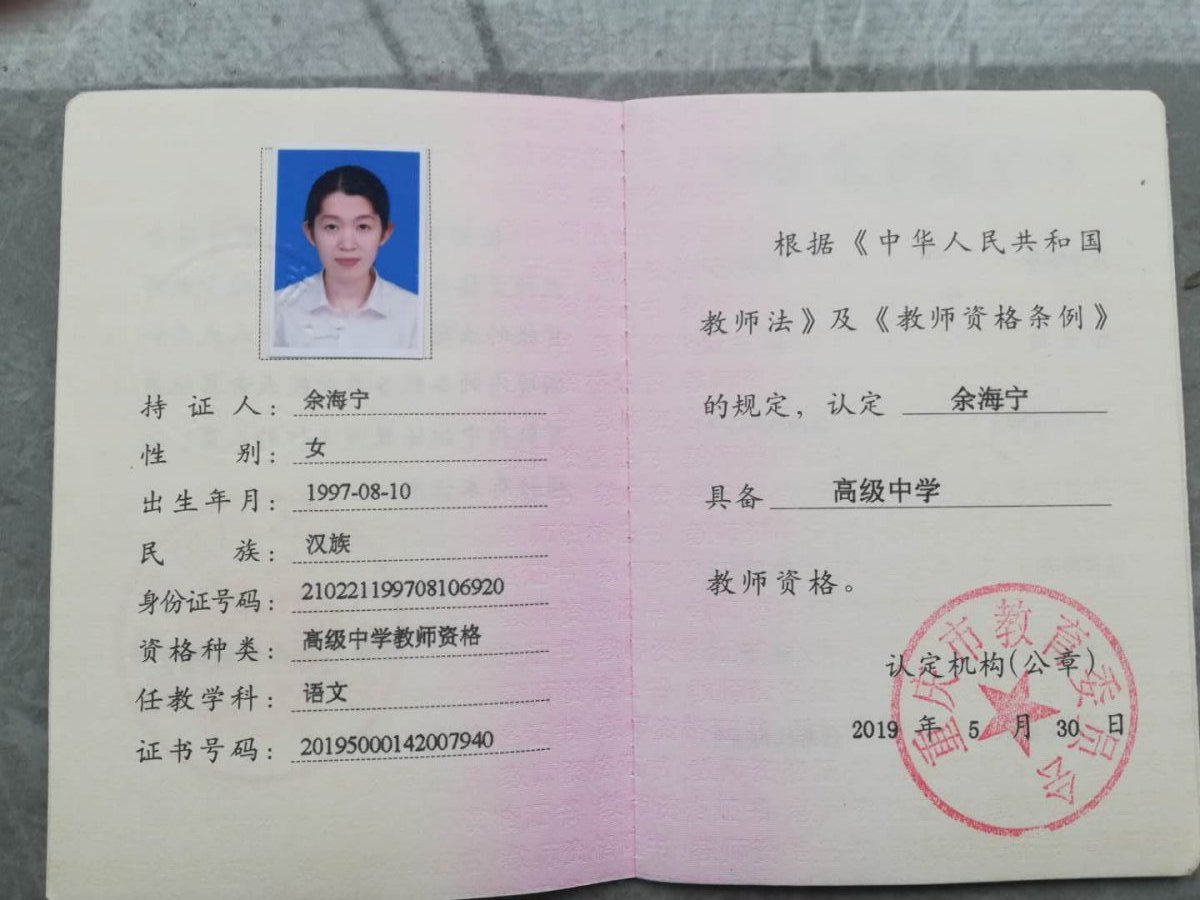 持证人：余海宁
性别：女
出生年月：1997-08-10
民族：汉族
身份证号码：210221199708106920
资格种类：高级中学教师资格
任教学科：语文
证书号码：20195000142007940
根据《中华人民共和国
教师法》及《教师资格条例》
的规定，认定 余海宁
具备 高级中学
教师资格。
认定机构(公章)
2019 年 5 月 30 日
重庆市教育委员会